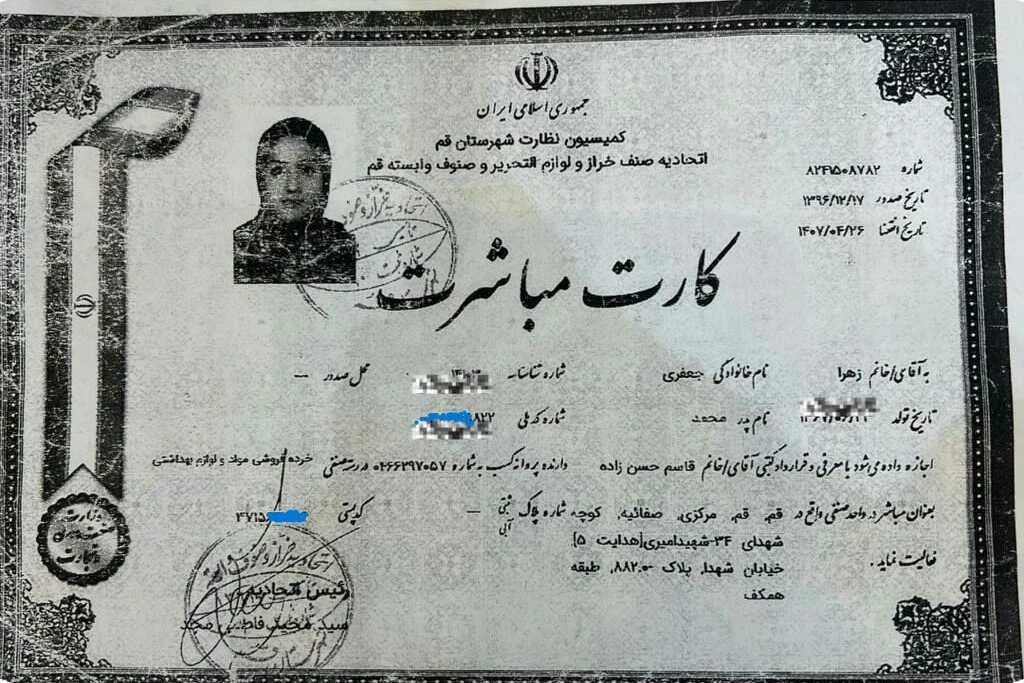 جمهوری اسلامی ایران
کمیسیون نظارت شهرستان قم
اتحادیه صنف خراز و لوازم التحریر و صنوف وابسته قم
شماره ۸۲۴۱۵۰۸۷۸۲
تاریخ صدور ۱۳۹۶/۱۲/۱۷
تاریخ انقضا ۱۴۰۷/۰۴/۲۶
کارت مباشرت
به آقای/خانم زهرا نام خانوادگی جعفری شماره شناسنامه محل صدور —
تاریخ تولد نام پدر محمد شماره کد ملی ۸۲۲
اجازه داده می‌شود با معرفی و قرارداد کتبی آقای/خانم قاسم حسن زاده دارنده پروانه کسب به شماره ۰۴۶۶۲۹۷۰۵۷ در رسته صنفی خرده فروشی مواد و لوازم بهداشتی
بعنوان مباشر در واحد صنفی واقع در قم، قم، مرکزی، صفائیه، کوچه شماره پلاک ثبتی آبی — کدپستی ۴۷۱۵
شهدای ۳۴-شهیدامیری(هدایت ۵)
خیابان شهدا، پلاک ۸۸۲.۰، طبقه
همکف
فعالیت نماید.
وزارت
صنعت
تجارت
رئیس اتحادیه
سید محمد